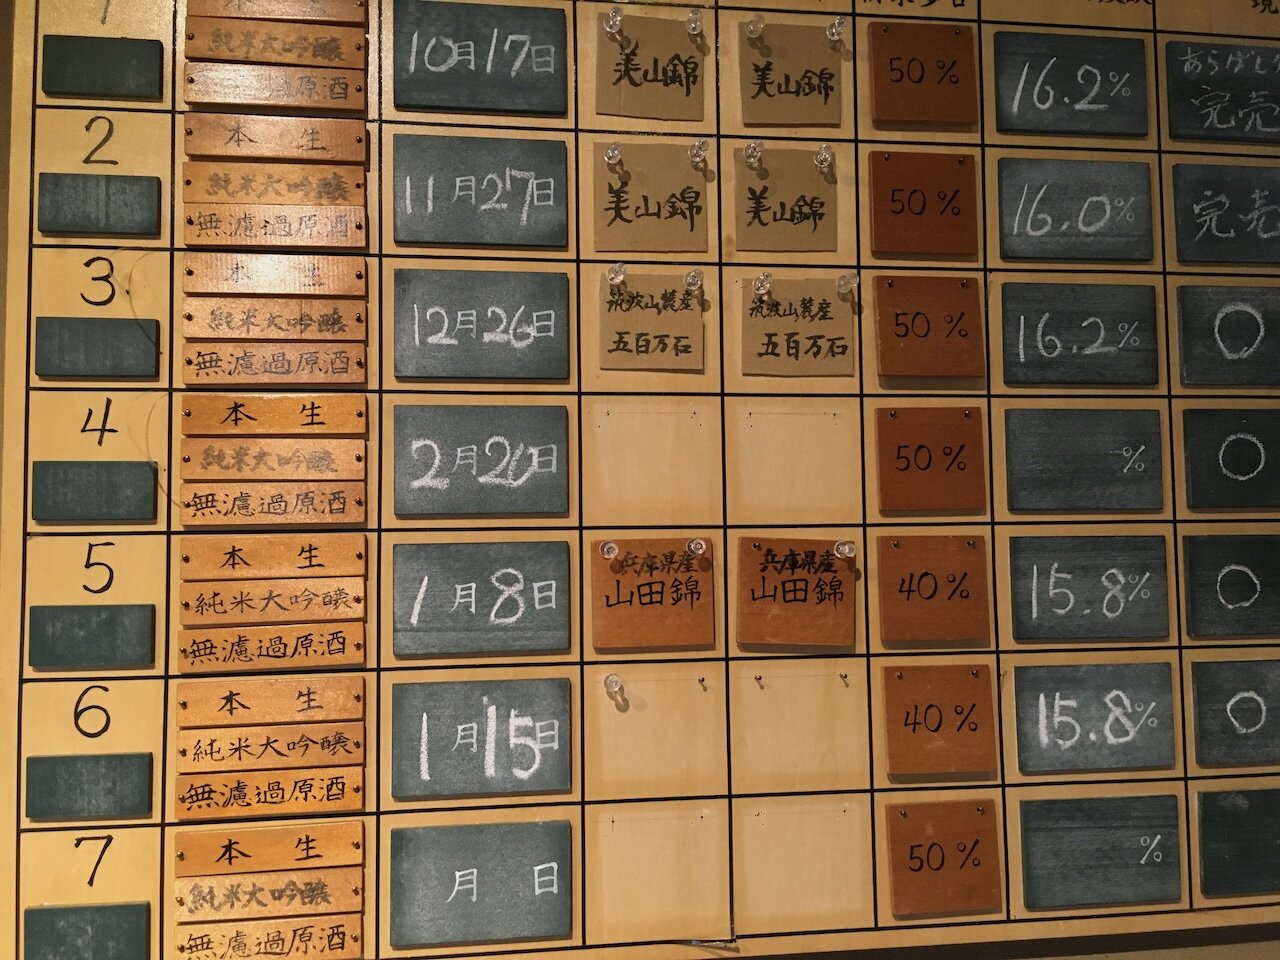 本 生
純米大吟醸
原酒
10月17日
美山錦
美山錦
50%
16.2%
あらばし
完売
2
本 生
純米大吟醸
無濾過原酒
11月27日
美山錦
美山錦
50%
16.0%
完売
3
本 生
純米大吟醸
無濾過原酒
12月26日
筑波山麓産
五百万石
筑波山麓産
五百万石
50%
16.2%
○
4
本 生
純米大吟醸
無濾過原酒
2月20日
50%
%
○
5
本 生
純米大吟醸
無濾過原酒
1月8日
兵庫県産
山田錦
兵庫県産
山田錦
40%
15.8%
○
6
本 生
純米大吟醸
無濾過原酒
1月15日
40%
15.8%
○
7
本 生
純米大吟醸
無濾過原酒
月 日
50%
%